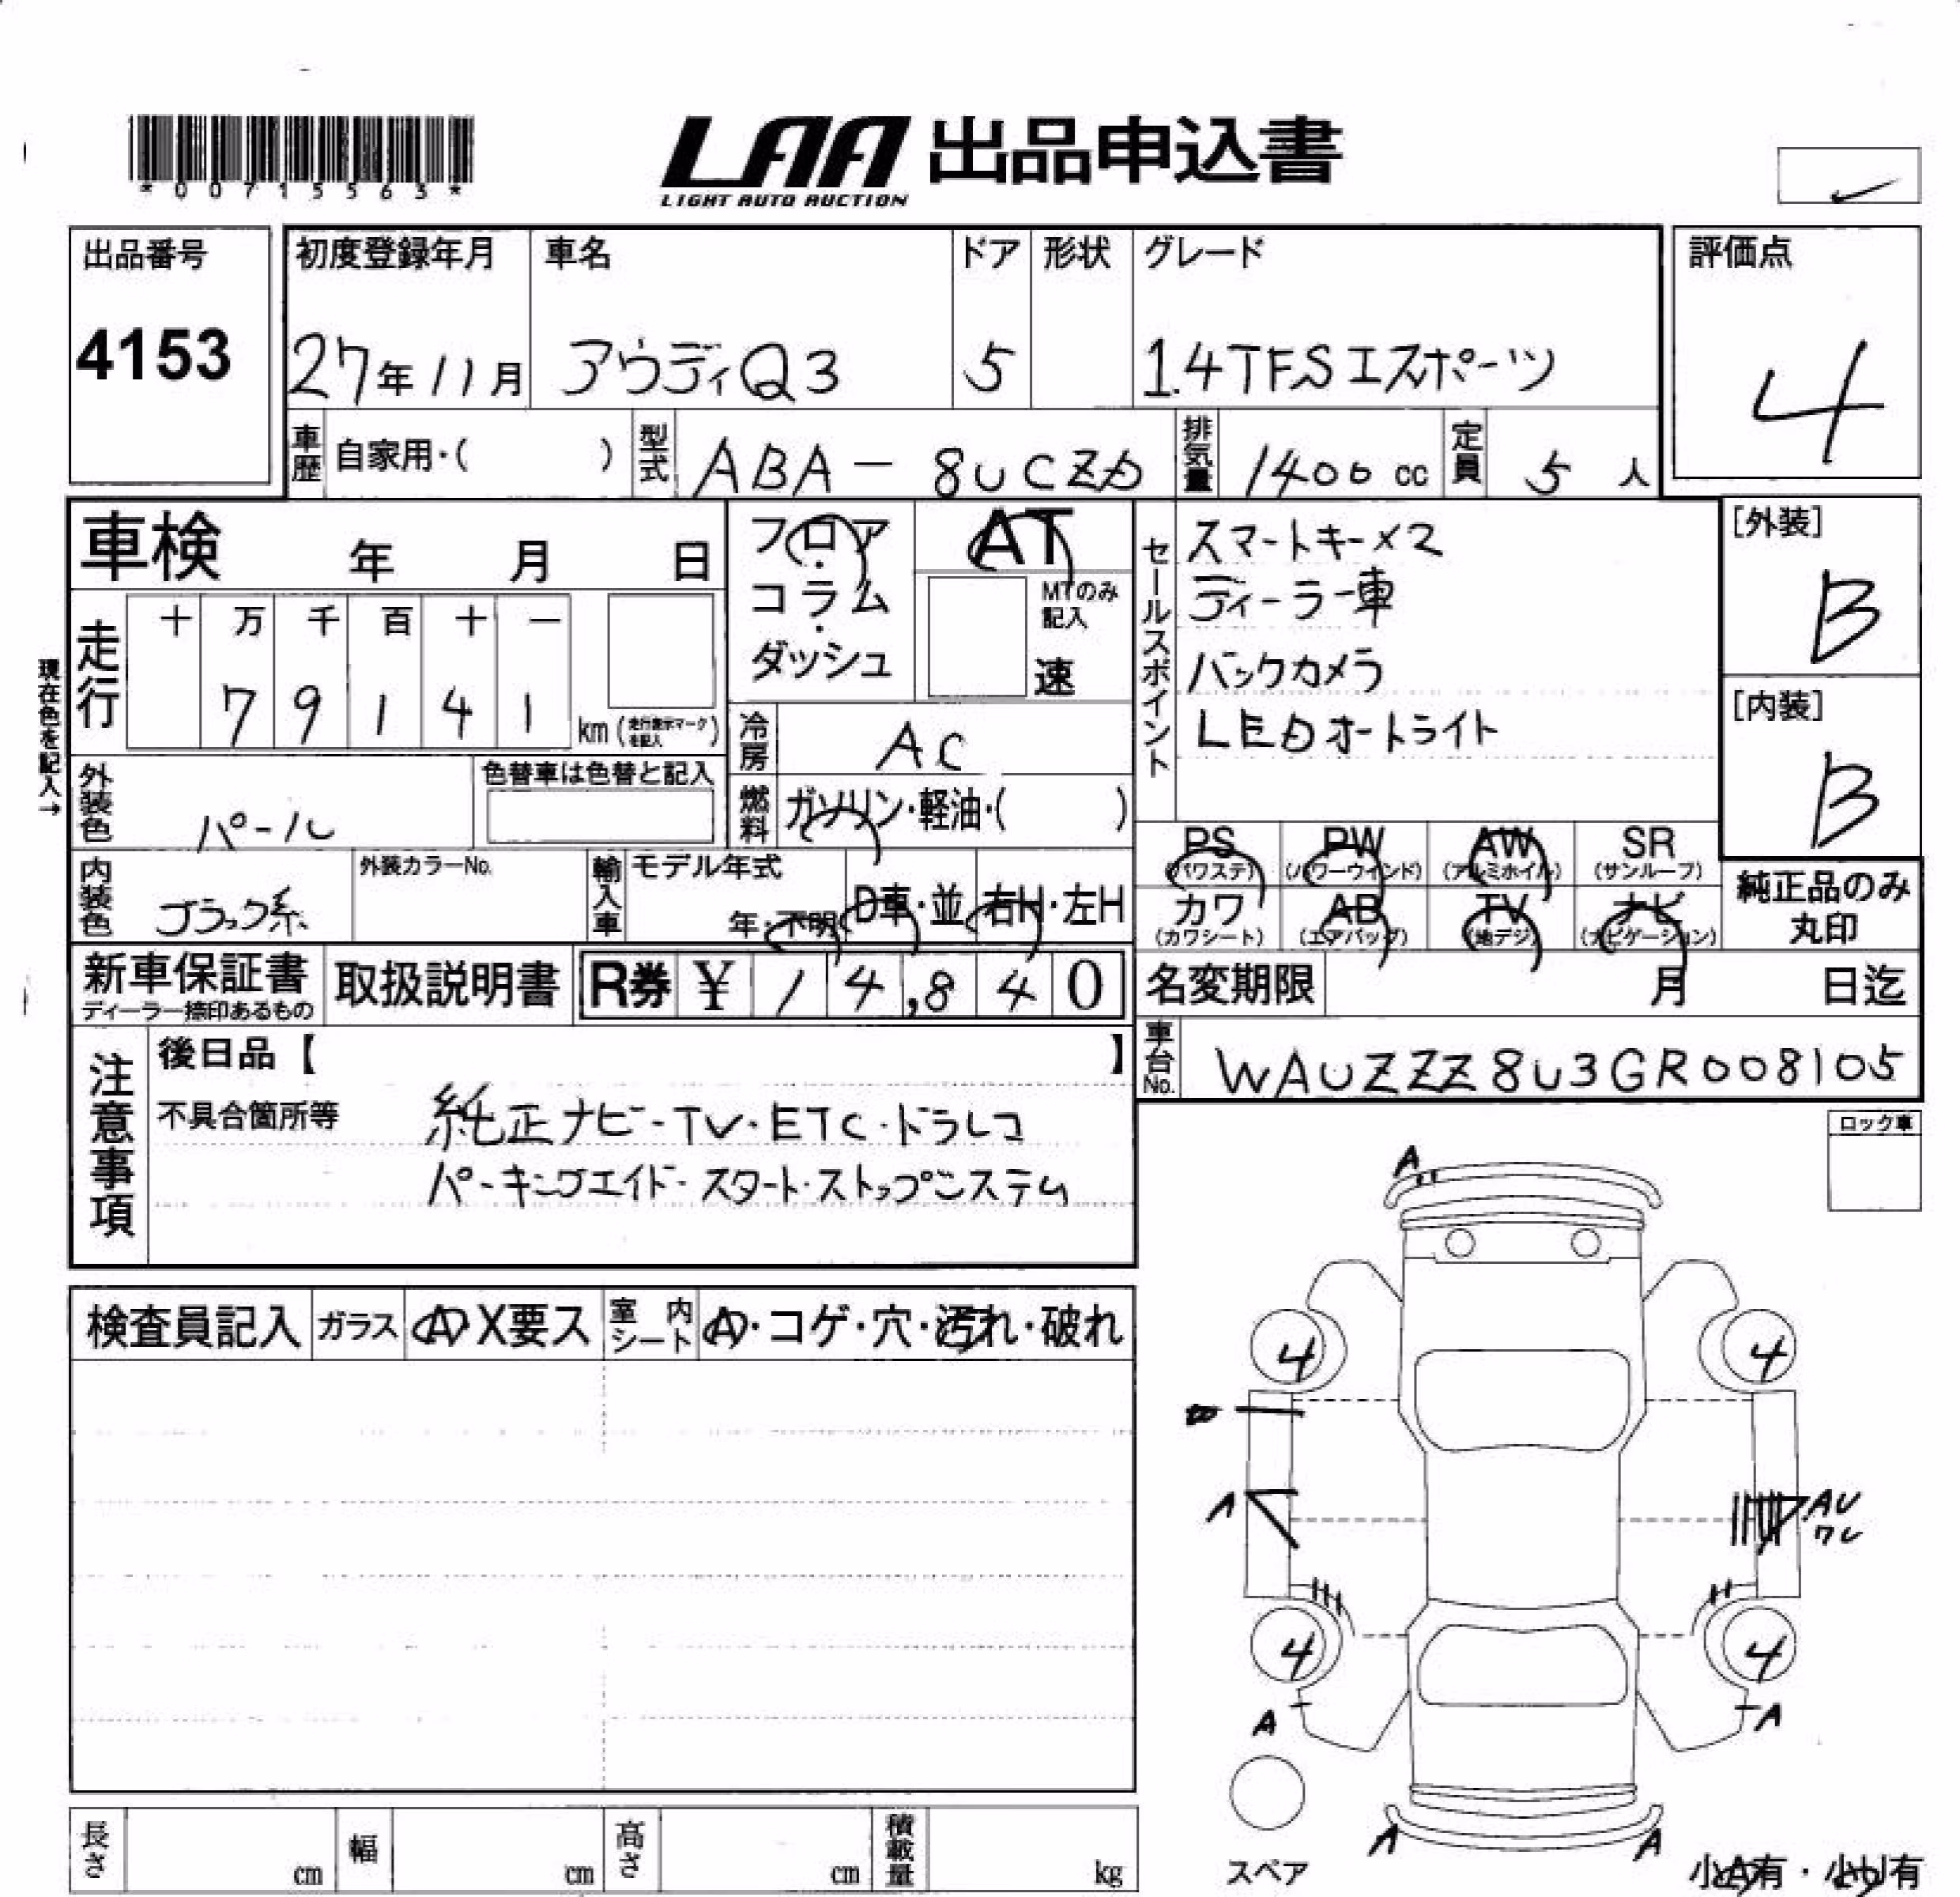 *00715563*
LAA 出品申込書
LIGHT AUTO AUCTION
出品番号
4153
初度登録年月
27年11月
車名
アウディQ3
ドア
5
形状
グレード
1.4TFSIエスポーツ
評価点
4
車歴 自家用・( )
型式 ABA-8UCZD
排気量 1400cc
定員 5人
車検 年 月 日
フロア・コラム・ダッシュ
AT
MTのみ記入
速
セールスポイント
スマートキーメス
ディーラー車
バックカメラ
LEDオートライト
[外装]
B
[内装]
B
現在色を記入→
走行 十 万 千 百 十 一
79141 km(走行表示マークを記入)
冷房 AC
燃料 ガソリン・軽油・( )
外装色 パール
色替車は色替と記入
内装色 ブラック系
外装カラーNo.
輸入車 モデル年式
年・不明 D車・並 右H・左H
PS(パワステ) PW(パワーウインド) AW(アルミホイル) SR(サンルーフ)
カワ(カワシート) AB(エアバッグ) TV(地デジ) ナビ(ナビゲーション)
純正品のみ丸印
新車保証書
ディーラー捺印あるもの
取扱説明書
R券 ¥14,840
名変期限 月 日迄
車台No. WAUZZZ8U3GR008105
注意事項
後日品【 】
不具合箇所等
純正ナビ・TV・ETC・ドラレコ
パーキングエイド・スタート・ストップシステム
ロック車
検査員記入 ガラス A・X要ス 室内シート A・コゲ・穴・汚れ・破れ
A
4 4
A
AU
ワレ
4 4
A A
A A
スペア
小A有・小U有
長さ cm 幅 cm 高さ cm 積載量 kg